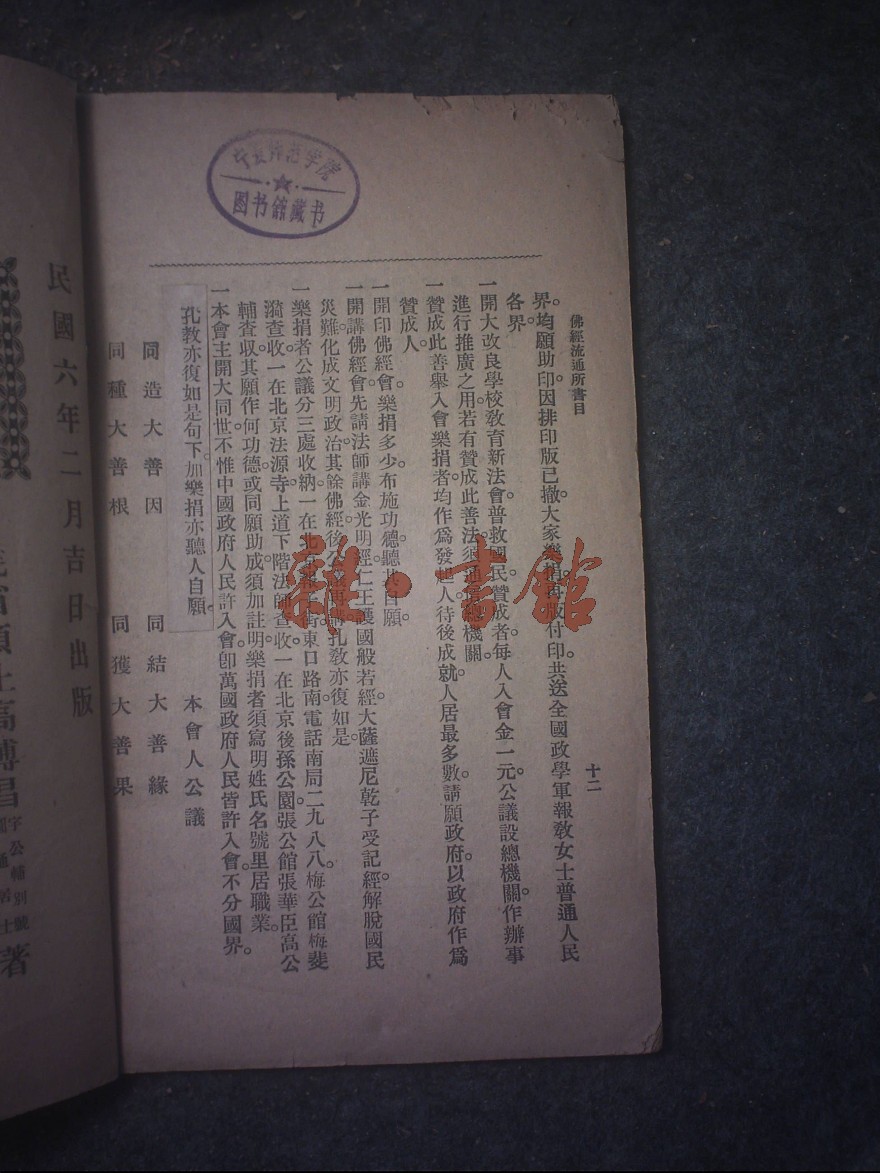 佛經流通所書目
十二
界。均願助印。因排印版已撤。大家樂捐再版付印。共送全國政學軍報教女士普通人民
各界。
一開大改良學校敎育新法會。普救國民。贊成者。每人入會金一元。公議設總機關。作辦事
進行推廣之用。若有贊成此善法。須通信總機關。
一贊成此善舉。入會樂捐者。均作爲發起人。待後成就。人居最多數。請願政府。以政府作爲
贊成人。
一開印佛經會。樂捐多少。布施功德。聽其自願。
一開講佛經會。先請法師講金光明經。仁王護國般若經。大薩遮尼乾子受記經。解脫國民
災難。化成文明政治。其餘佛經後公議再講。孔敎亦復如是。
一樂捐者。公議分三處收納。一在北京 街東口路南電話南局二九八八。梅公館梅斐
漪查收。一在北京法源寺上道下階法師查收。一在北京後孫公園張公館張華臣高公
輔查收。其願作何功德。或同願助成。須加註明。樂捐者須寫明姓氏名號里居職業。
一本會主開大同世。不惟中國政府人民許入會。卽萬國政府人民皆許入會。不分國界。
孔教亦復如是句下。加樂捐亦聽人自願。
本會人公議
同造大善因 同結大善緣
同種大善根 同獲大善果
民國六年二月吉日出版
願士高博昌
字公輔別號
居士
著
師范学院
图书馆藏书
雜·書館